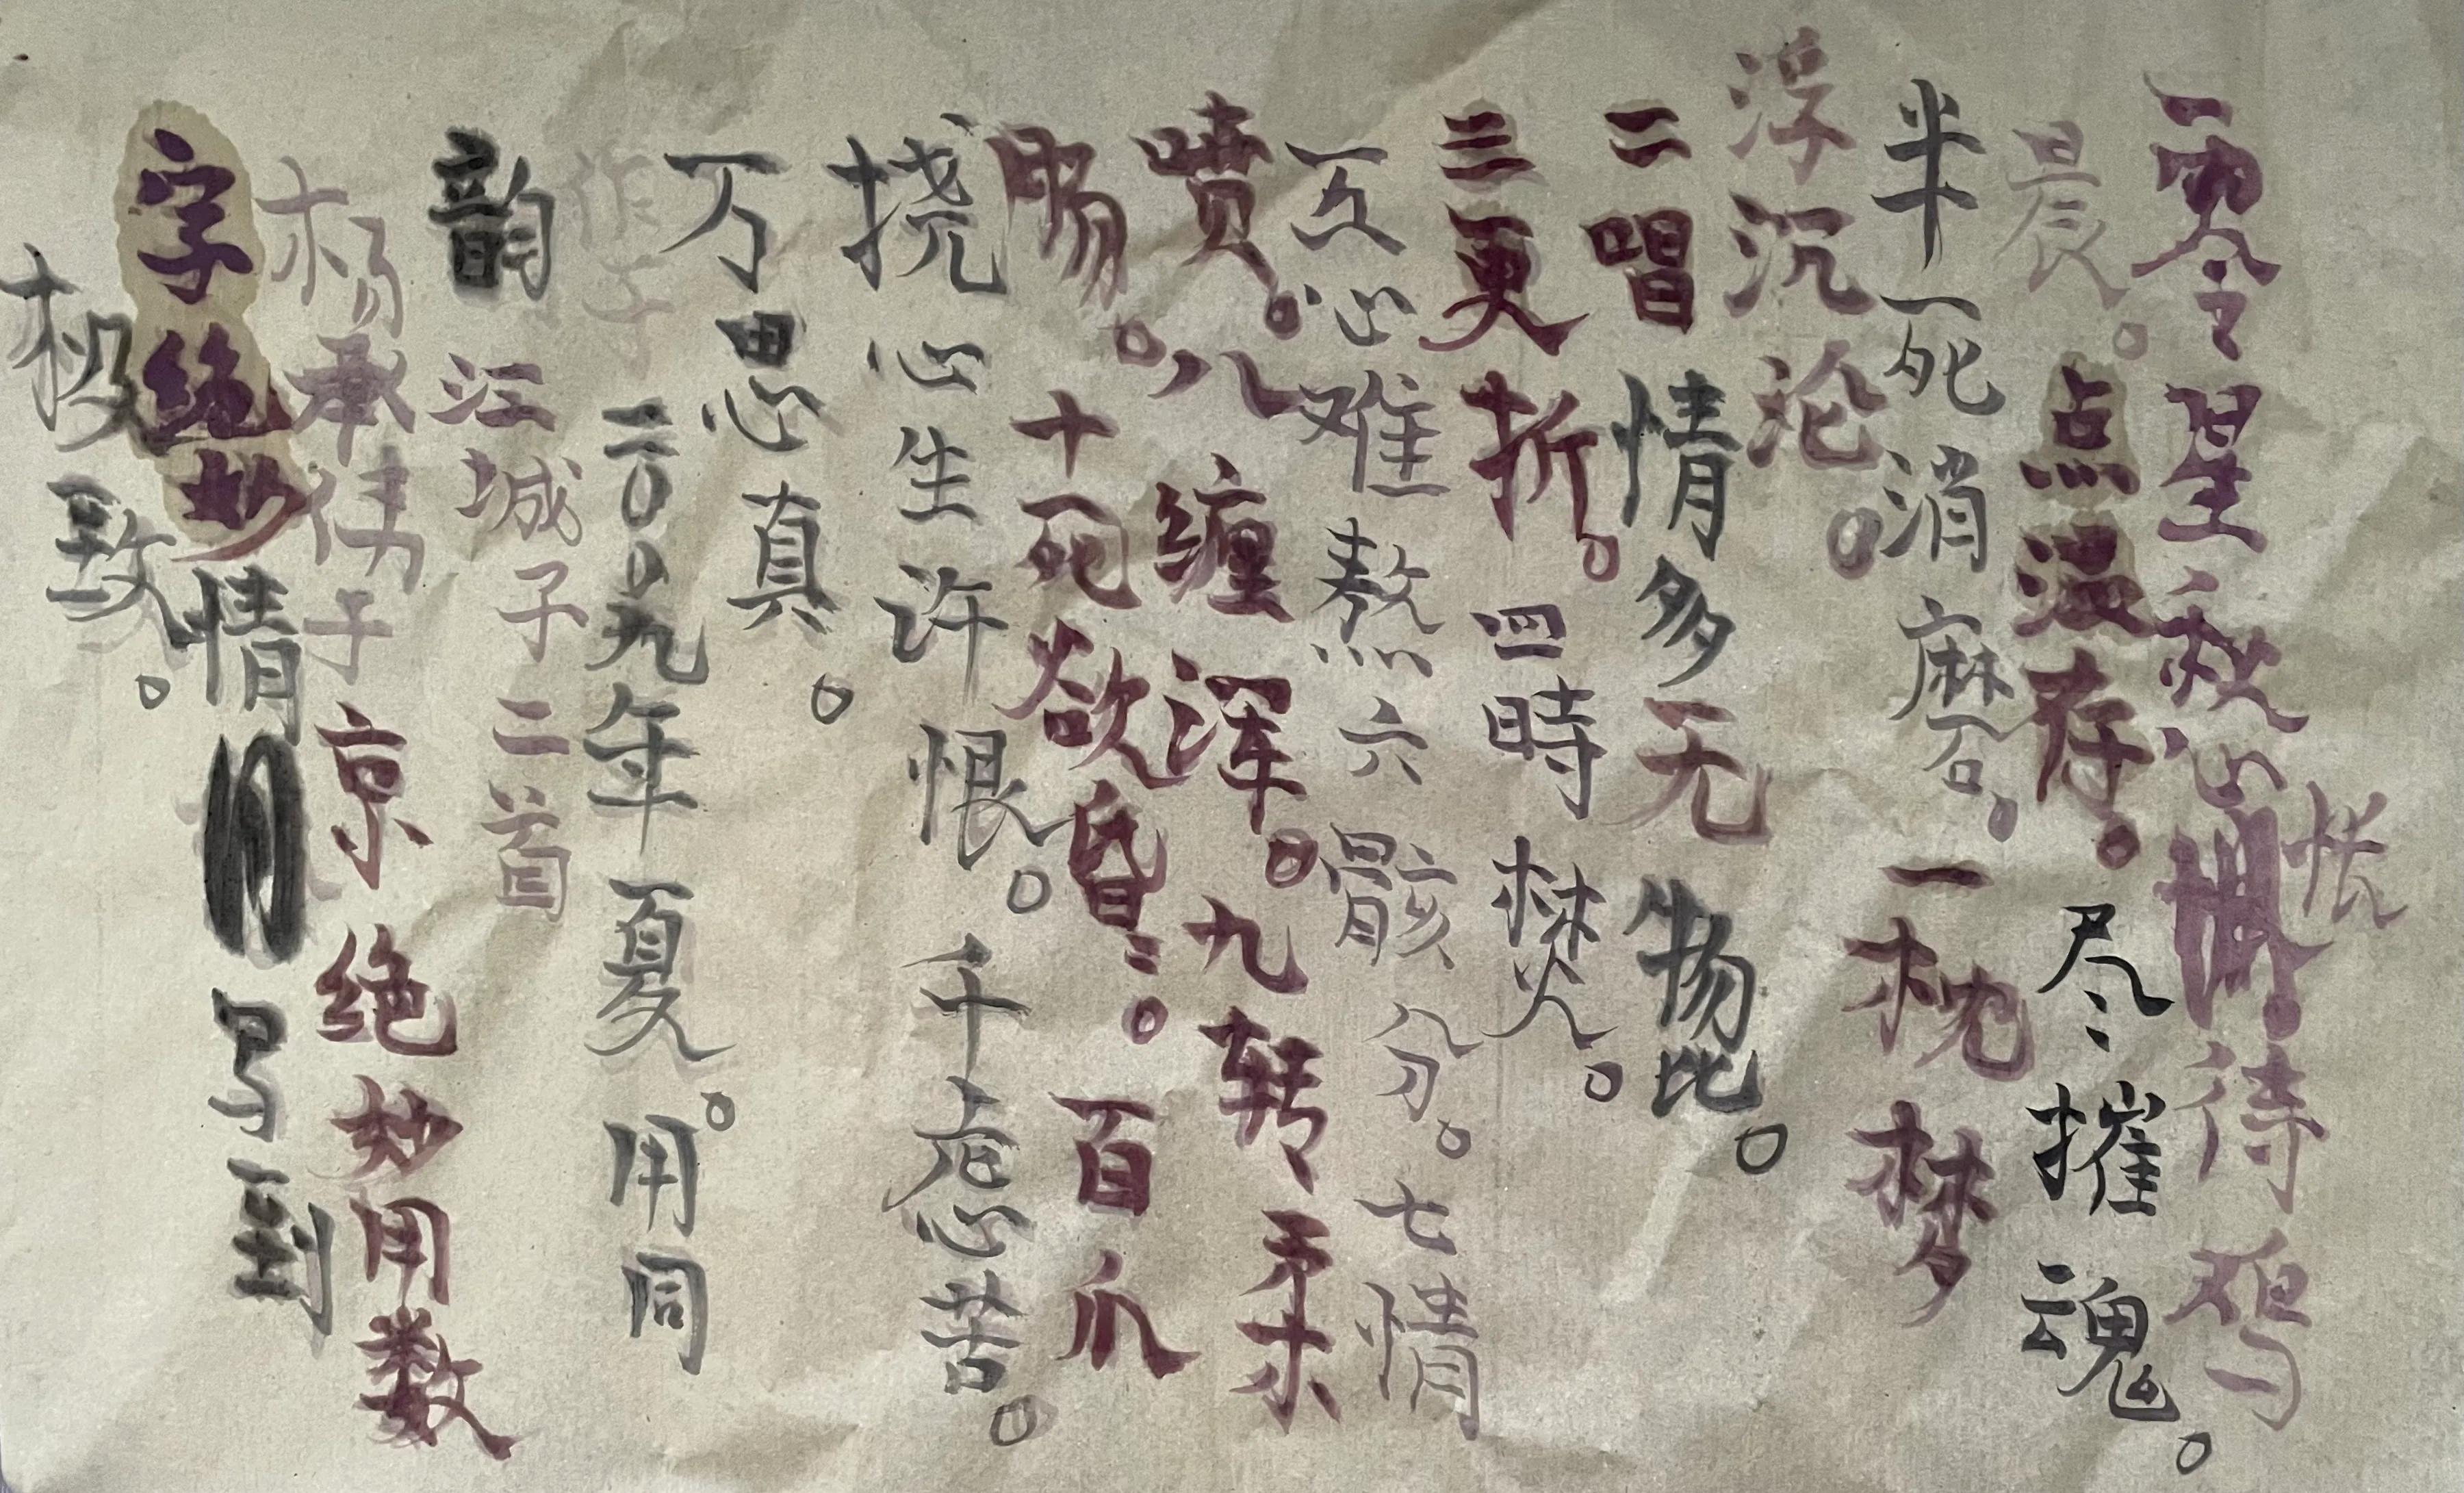 零星秋心怅待鸡
晨。点温存。尽摧魂。
半死消磨。一枕梦
浮沉沦。
二唱情多无物比。
三更折。四時焚。
五心难熬六骸分。七情
喷。八缠浑。九转柔
肠。十死欲昏〻。百爪
挠心生许恨。千虑苦。
万思真。
作于二〇〇九年夏。用同
韵江城子二首
杨承子京绝妙用数
字绝妙情写到
极致。